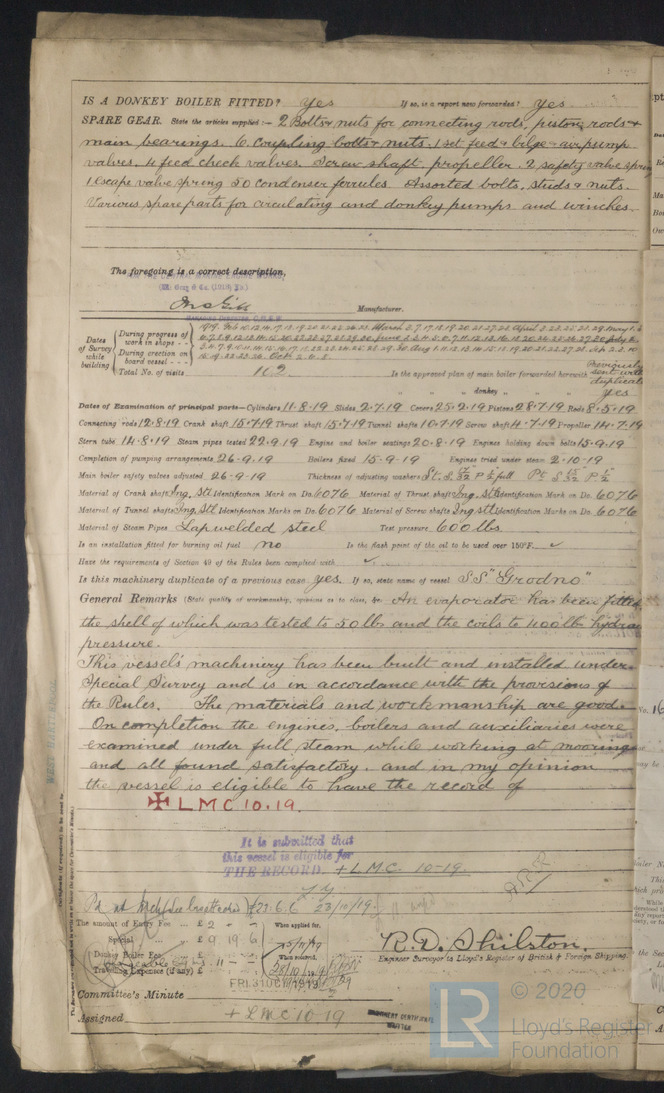 IS A DONKEY BOILER FITTED? yes If so, is a report now forwarded? yes
SPARE GEAR. State the articles supplied:— 2 Bolts & nuts for connecting rods, piston rods &
main bearings. 6 coupling bolts & nuts. 1 set feed & bilge & air pump
valves. 4 feed check valves. Screw shaft. propeller. 2 safety valve spring
1 escape valve spring 50 condenser ferrules Assorted bolts, studs & nuts.
Various spare parts for circulating and donkey pumps and winches
The foregoing is a correct description,
Manufacturer.
Dates of Survey while building
During progress of work in shops
During erection on board vessel
Total No. of visits 102
Is the approved plan of main boiler forwarded herewith Previously sent with duplicate
" " " donkey " " " yes
Dates of Examination of principal parts—Cylinders 11-8-19 Slides 2-7-19 Covers 25-2-19 Pistons 28-7-19 Rods 8-5-19
Connecting rods 12-8-19 Crank shaft 15-7-19 Thrust shaft 15-7-19 Tunnel shafts 10-7-19 Screw shaft 4-7-19 Propeller 14-7-19
Stern tube 14-8-19 Steam pipes tested 22-9-19 Engine and boiler seatings 20-8-19 Engines holding down bolts 15-9-19
Completion of pumping arrangements 26-9-19 Boilers fixed 15-9-19 Engines tried under steam 2-10-19
Main boiler safety valves adjusted 26-9-19 Thickness of adjusting washers
Material of Crank shaft Ing. Stl Identification Mark on Do. 6076 Material of Thrust shaft Ing. Stl Identification Mark on Do. 6076
Material of Tunnel shafts Ing. Stl Identification Marks on Do. 6076 Material of Screw shafts Ing stl Identification Marks on Do. 6076
Material of Steam Pipes Lap welded steel Test pressure 600 lbs.
Is an installation fitted for burning oil fuel no Is the flash point of the oil to be used over 150°F. ✓
Have the requirements of Section 49 of the Rules been complied with ✓
Is this machinery duplicate of a previous case yes. If so, state name of vessel S.S "Grodno"
General Remarks (State quality of workmanship, opinions as to class, &c. An evaporator has been fitted
the shell of which was tested to 50 lbs and the coils to 400 lbs hydrau
pressure.
This vessel's machinery has been built and installed under
Special Survey and is in accordance with the provisions of
the Rules. The materials and workmanship are good.
On completion the engines, boilers and auxiliaries were
examined under full steam while working at moorings
and all found satisfactory. and in my opinion
the vessel is eligible to have the record of
✠ LMC 10.19.
It is submitted that
this vessel is eligible for
THE RECORD. + LMC. 10-19.
23/10/19
The amount of Entry Fee £ 2 When applied for,
Special £ 9 19 6
Donkey Boiler Fee £
Travelling Expenses (if any) £
When received,
R. D. Shilston.
Engineer Surveyor to Lloyd's Register of British & Foreign Shipping.
Committee's Minute FRI. 31 OCT 1919
Assigned + LMC 10.19
MACHINERY CERTIFICATE
WRITTEN
WEST HARTLEPOOL
LR © 2020
Lloyd's Register
Foundation